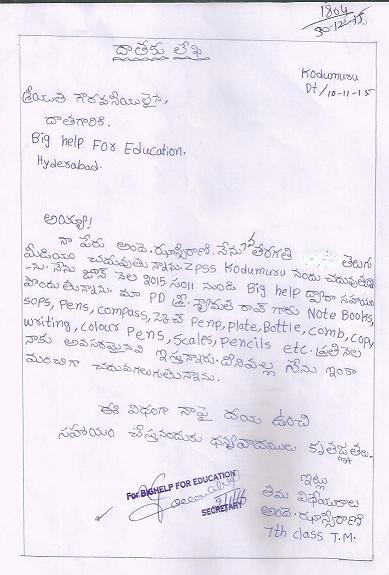 1804
30-12-15
దాతకు లేఖ
Kodumuru
Dt/10-11-15
శ్రీయుత గౌరవనీయులైన,
దాతగారికి.
Big help For Education.
Hyderabad.
అయ్యా!
నా పేరు అండె.ఝాన్సీరాణి. నేను 7వ తరగతి తెలుగు
మీడియం చదువుతున్నాను. ZPSS Kodumuru నందు చదువుతున్నా
-ను. నేను జూన్ నెల 2015 సం॥ నుండి Big help ద్వారా సహాయం
పొందుతున్నాను. మా PD శ్రీ. రావ్ గారు Note Books,
sops, Pens, compass, స్కెచ్ Penp, plate, Bottle, comb, copy
writing, colour Pens, Scales, Pencils etc. ప్రతినెల
నాకు అవసరమైనవి ఇస్తున్నారు. దీనివల్ల నేను ఇంకా
మంచిగా చదువగలుగుతున్నాను.
ఈ విధంగా నాపై దయ ఉంచి
సహాయం చేస్తునందుకు ధన్యవాదములు కృతజ్ఞతలు.
ఇట్లు
తమ విధేయురాలు
అండె.ఝాన్సీరాణి
7th class T.M.
For BIGHELP FOR EDUCATION
SECRETARY